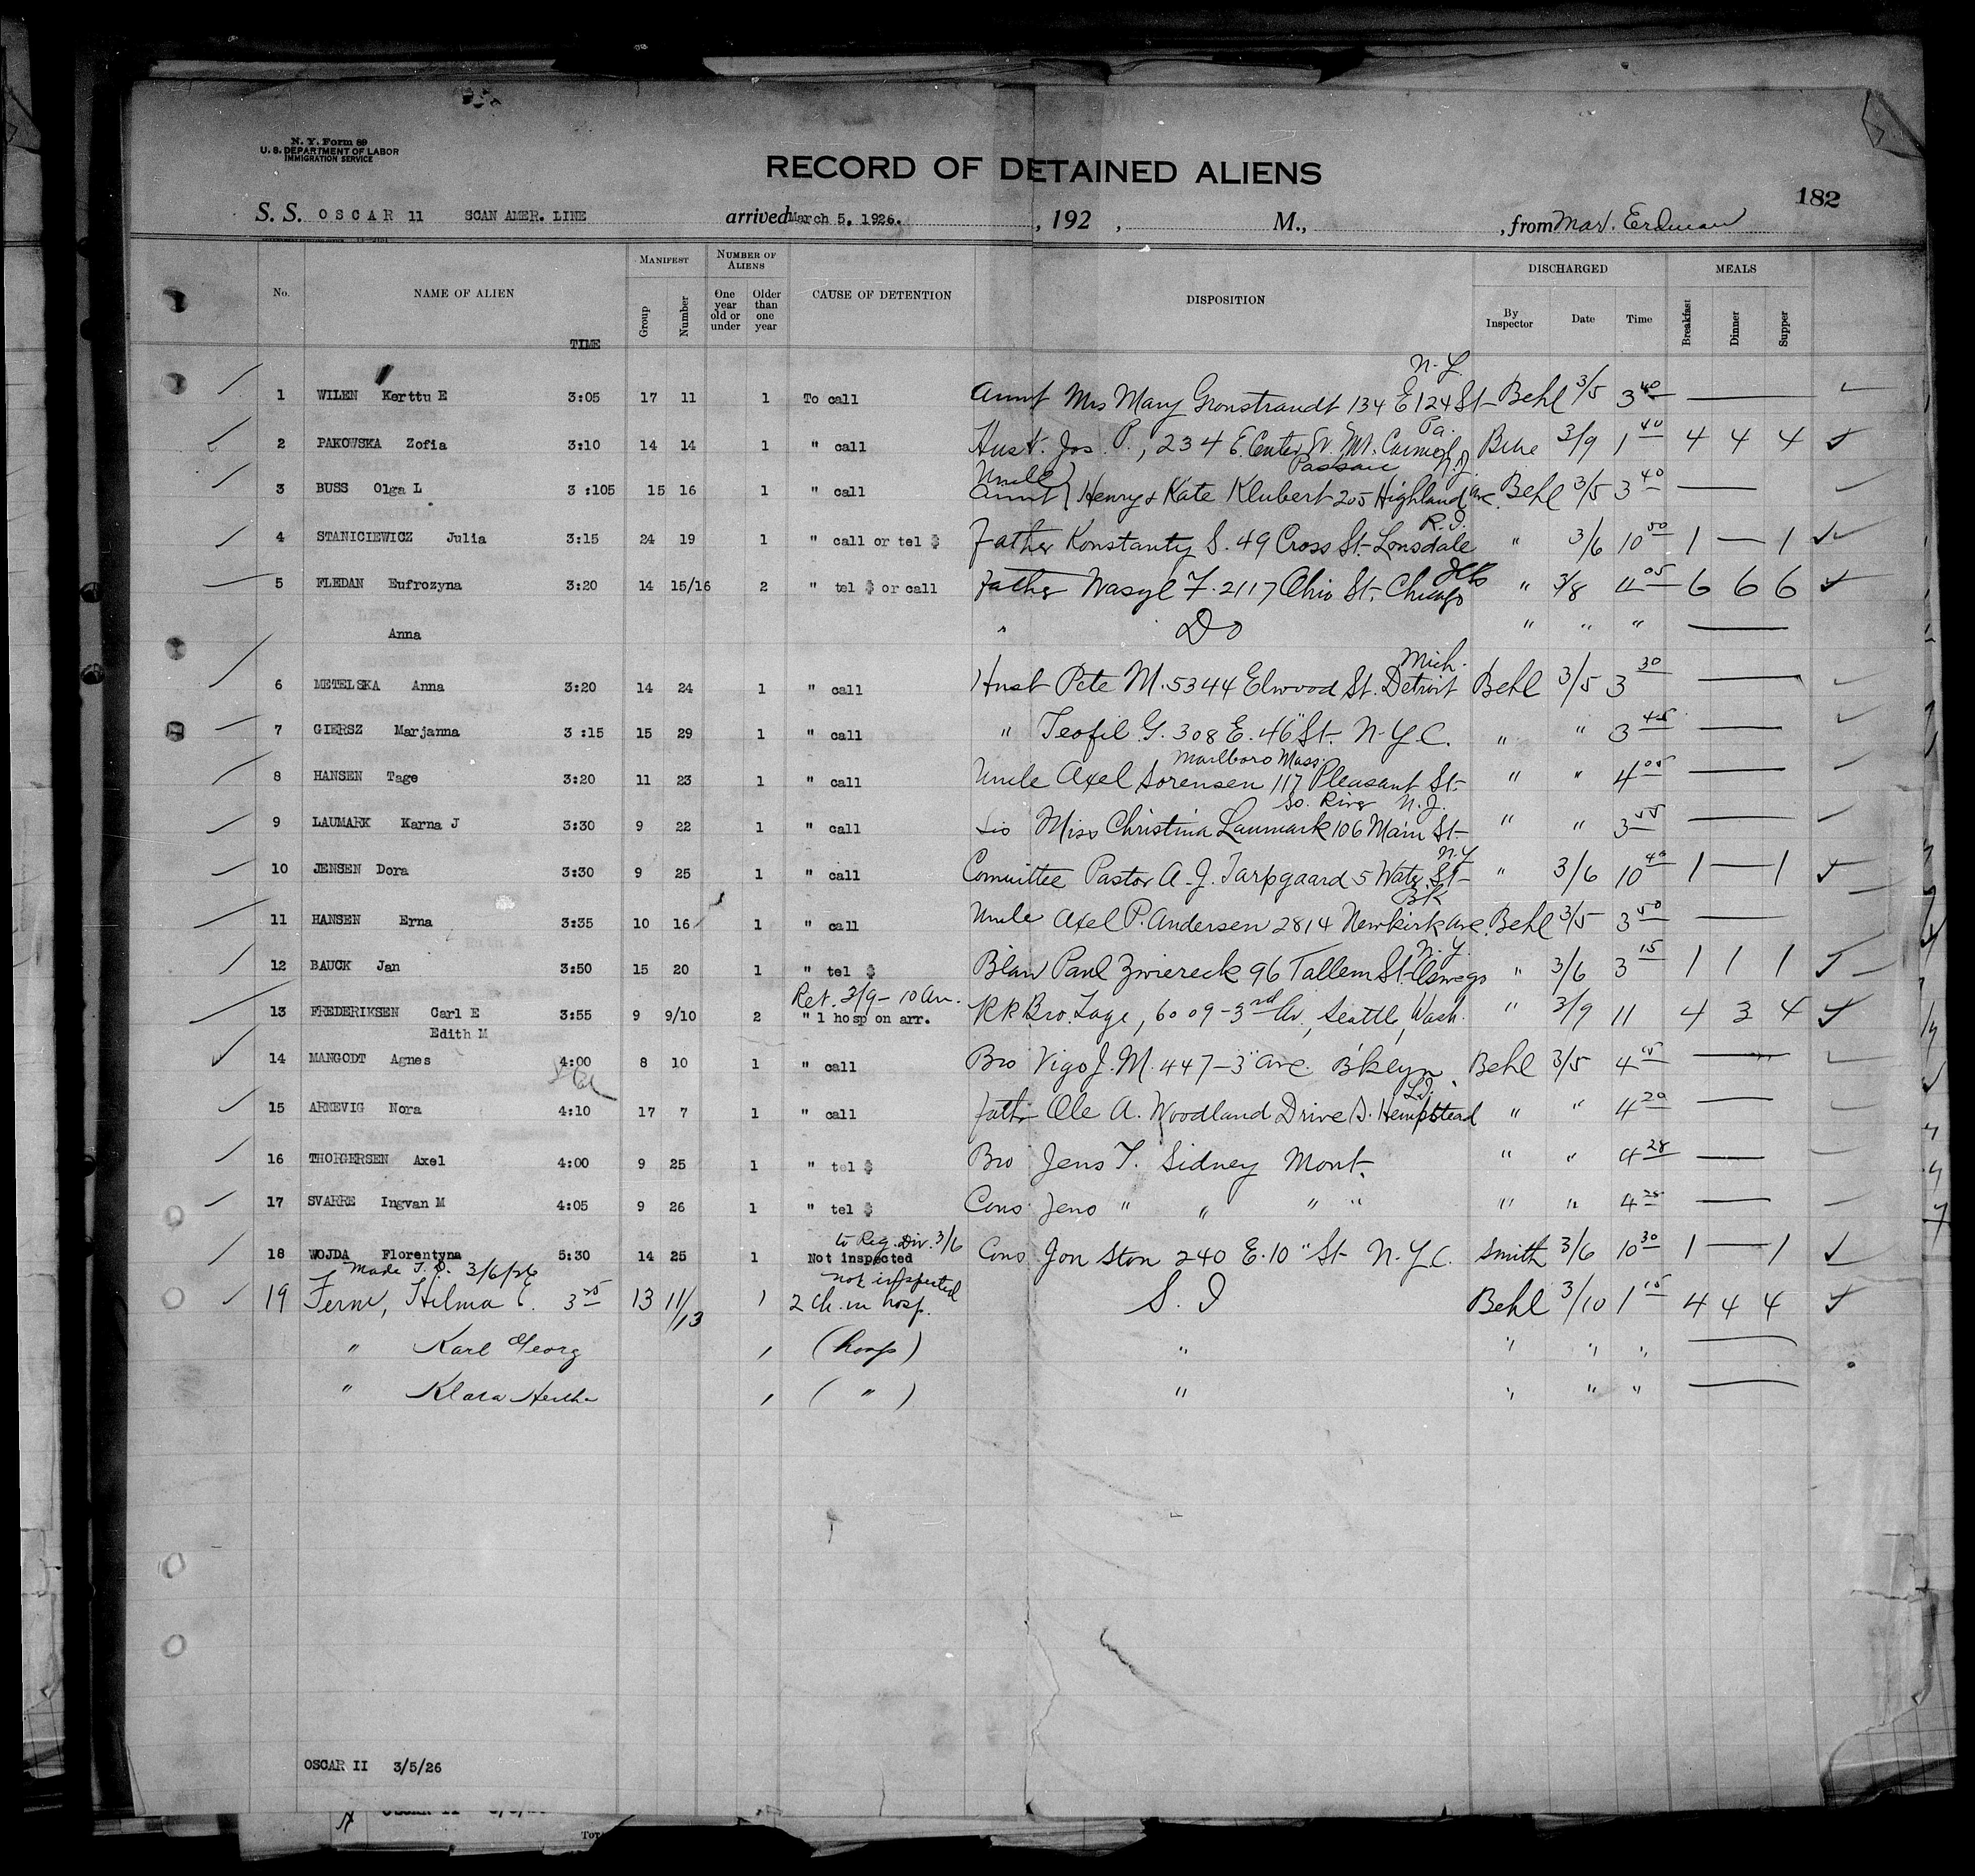 N. Y. Form 89
U. S. DEPARTMENT OF LABOR
IMMIGRATION SERVICE
RECORD OF DETAINED ALIENS
182
S. S. OSCAR 11 SCAN AMER. LINE arrived March 5, 1926. , 192 , M., , from Mar. Erdman
No. NAME OF ALIEN TIME MANIFEST Group Number NUMBER OF ALIENS One year old or under Older than one year CAUSE OF DETENTION DISPOSITION DISCHARGED By Inspector Date Time MEALS Breakfast Dinner Supper
N.Y.
1 WILEN Kerttu E 3:05 17 11 1 To call Aunt Mrs Mary Gronstrandt 134 E 124 St- Behl 3/5 3 40
Pa.
2 PAKOWSKA Zofia 3:10 14 14 1 " call Husb. Jos. P., 234 E. Center St. Mt. Carmel 3/9 1 40 4 4 4
Uncle Passaic N.J.
3 BUSS Olga L 3 :105 15 16 1 " call Aunt Henry & Kate Klubert 205 Highland Ave. Behl 3/5 3 40
R.I.
4 STANICIEWICZ Julia 3:15 24 19 1 " call or tel $ Father Konstanty S. 49 Cross St- Lonsdale " 3/6 10 50 1 — 1
Ills
5 FLEDAN Eufrozyna 3:20 14 15/16 2 " tel $ or call Father Wasyl F. 2117 Ohio St, Chicago " 3/8 11 05 6 6 6
Anna " Do " " "
Mich.
6 METELSKA Anna 3:20 14 24 1 " call Husb Pete M. 5344 Elwood St. Detroit Behl 3/5 3 30
7 GIERSZ Marjanna 3 :15 15 29 1 " call " Teofil G. 308 E. 46" St. N.Y.C. " " 3 45
Marlboro Mass.
8 HANSEN Tage 3:20 11 23 1 " call Uncle Axel Sorensen 117 Pleasant St- " " 4 00
So. River N.J.
9 LAUMARK Karna J 3:30 9 22 1 " call Sis Miss Christina Laumark 106 Main St- " " 3 55
N.Y.
10 JENSEN Dora 3:30 9 25 1 " call Committee Pastor A. J. Tarpgaard 5 Water St- " 3/6 10 40 1 — 1
Bk
11 HANSEN Erna 3:35 10 16 1 " call Uncle Axel P. Andersen 2814 Newkirk Ave. Behl 3/5 3 50
N.Y.
12 BAUCK Jan 3:50 15 20 1 " tel $ Paul Zwiereck 96 Tallem St. Oswego " 3/6 3 15 1 1 1
Ret. 3/9 - 10 am.
13 FREDERIKSEN Carl E 3:55 9 9/10 2 " 1 hosp on arr. RR Bro. Tage, 6009-3rd Av., Seattle, Wash. " 3/9 11 4 3 4
Edith M
14 MANGODT Agnes 4:00 8 10 1 " call Bro Vigo J. M. 447-3" Ave. B'klyn Behl 3/5 4 05
L.I.
15 ARNEVIG Nora 4:10 17 7 1 " call Father Ole A. Woodland Drive S. Hempstead " " 4 20
16 THORGERSEN Axel 4:00 9 25 1 " tel $ Bro Jens T. Sidney Mont. " " 4 28
17 SVARRE Ingvan M 4:05 9 26 1 " tel $ Cous Jens " " " " " " 4 28
to Reg. Div. 3/6
18 WOJDA Florentyna 5:30 14 25 1 Not inspected Cous Jon Ston 240 E. 10" St N.Y.C. Smith 3/6 10 30 1 — 1
Made 3/6/26 not inspected
19 Ferm, Hilma E. 13 11/13 1 2 ch. in hosp. S. I Behl 3/10 1 15 4 4 4
" Karl Georg 1 (hosp) " " " "
" Klara Hertha 1 ( " ) " " " "
OSCAR II 3/5/26